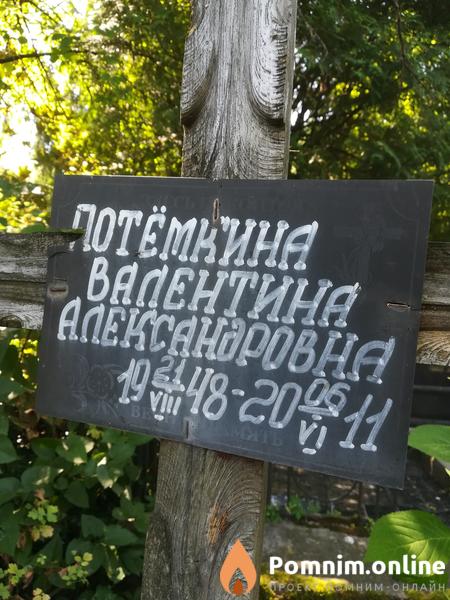 ПОТЁМКИНА
ВАЛЕНТИНА
АЛЕКСАНДРОВНА
19 21/VIII 48 - 20 06/VI 11
Pomnim.online
ПРОЕКТ ПОМНИМ-ОНЛАЙН